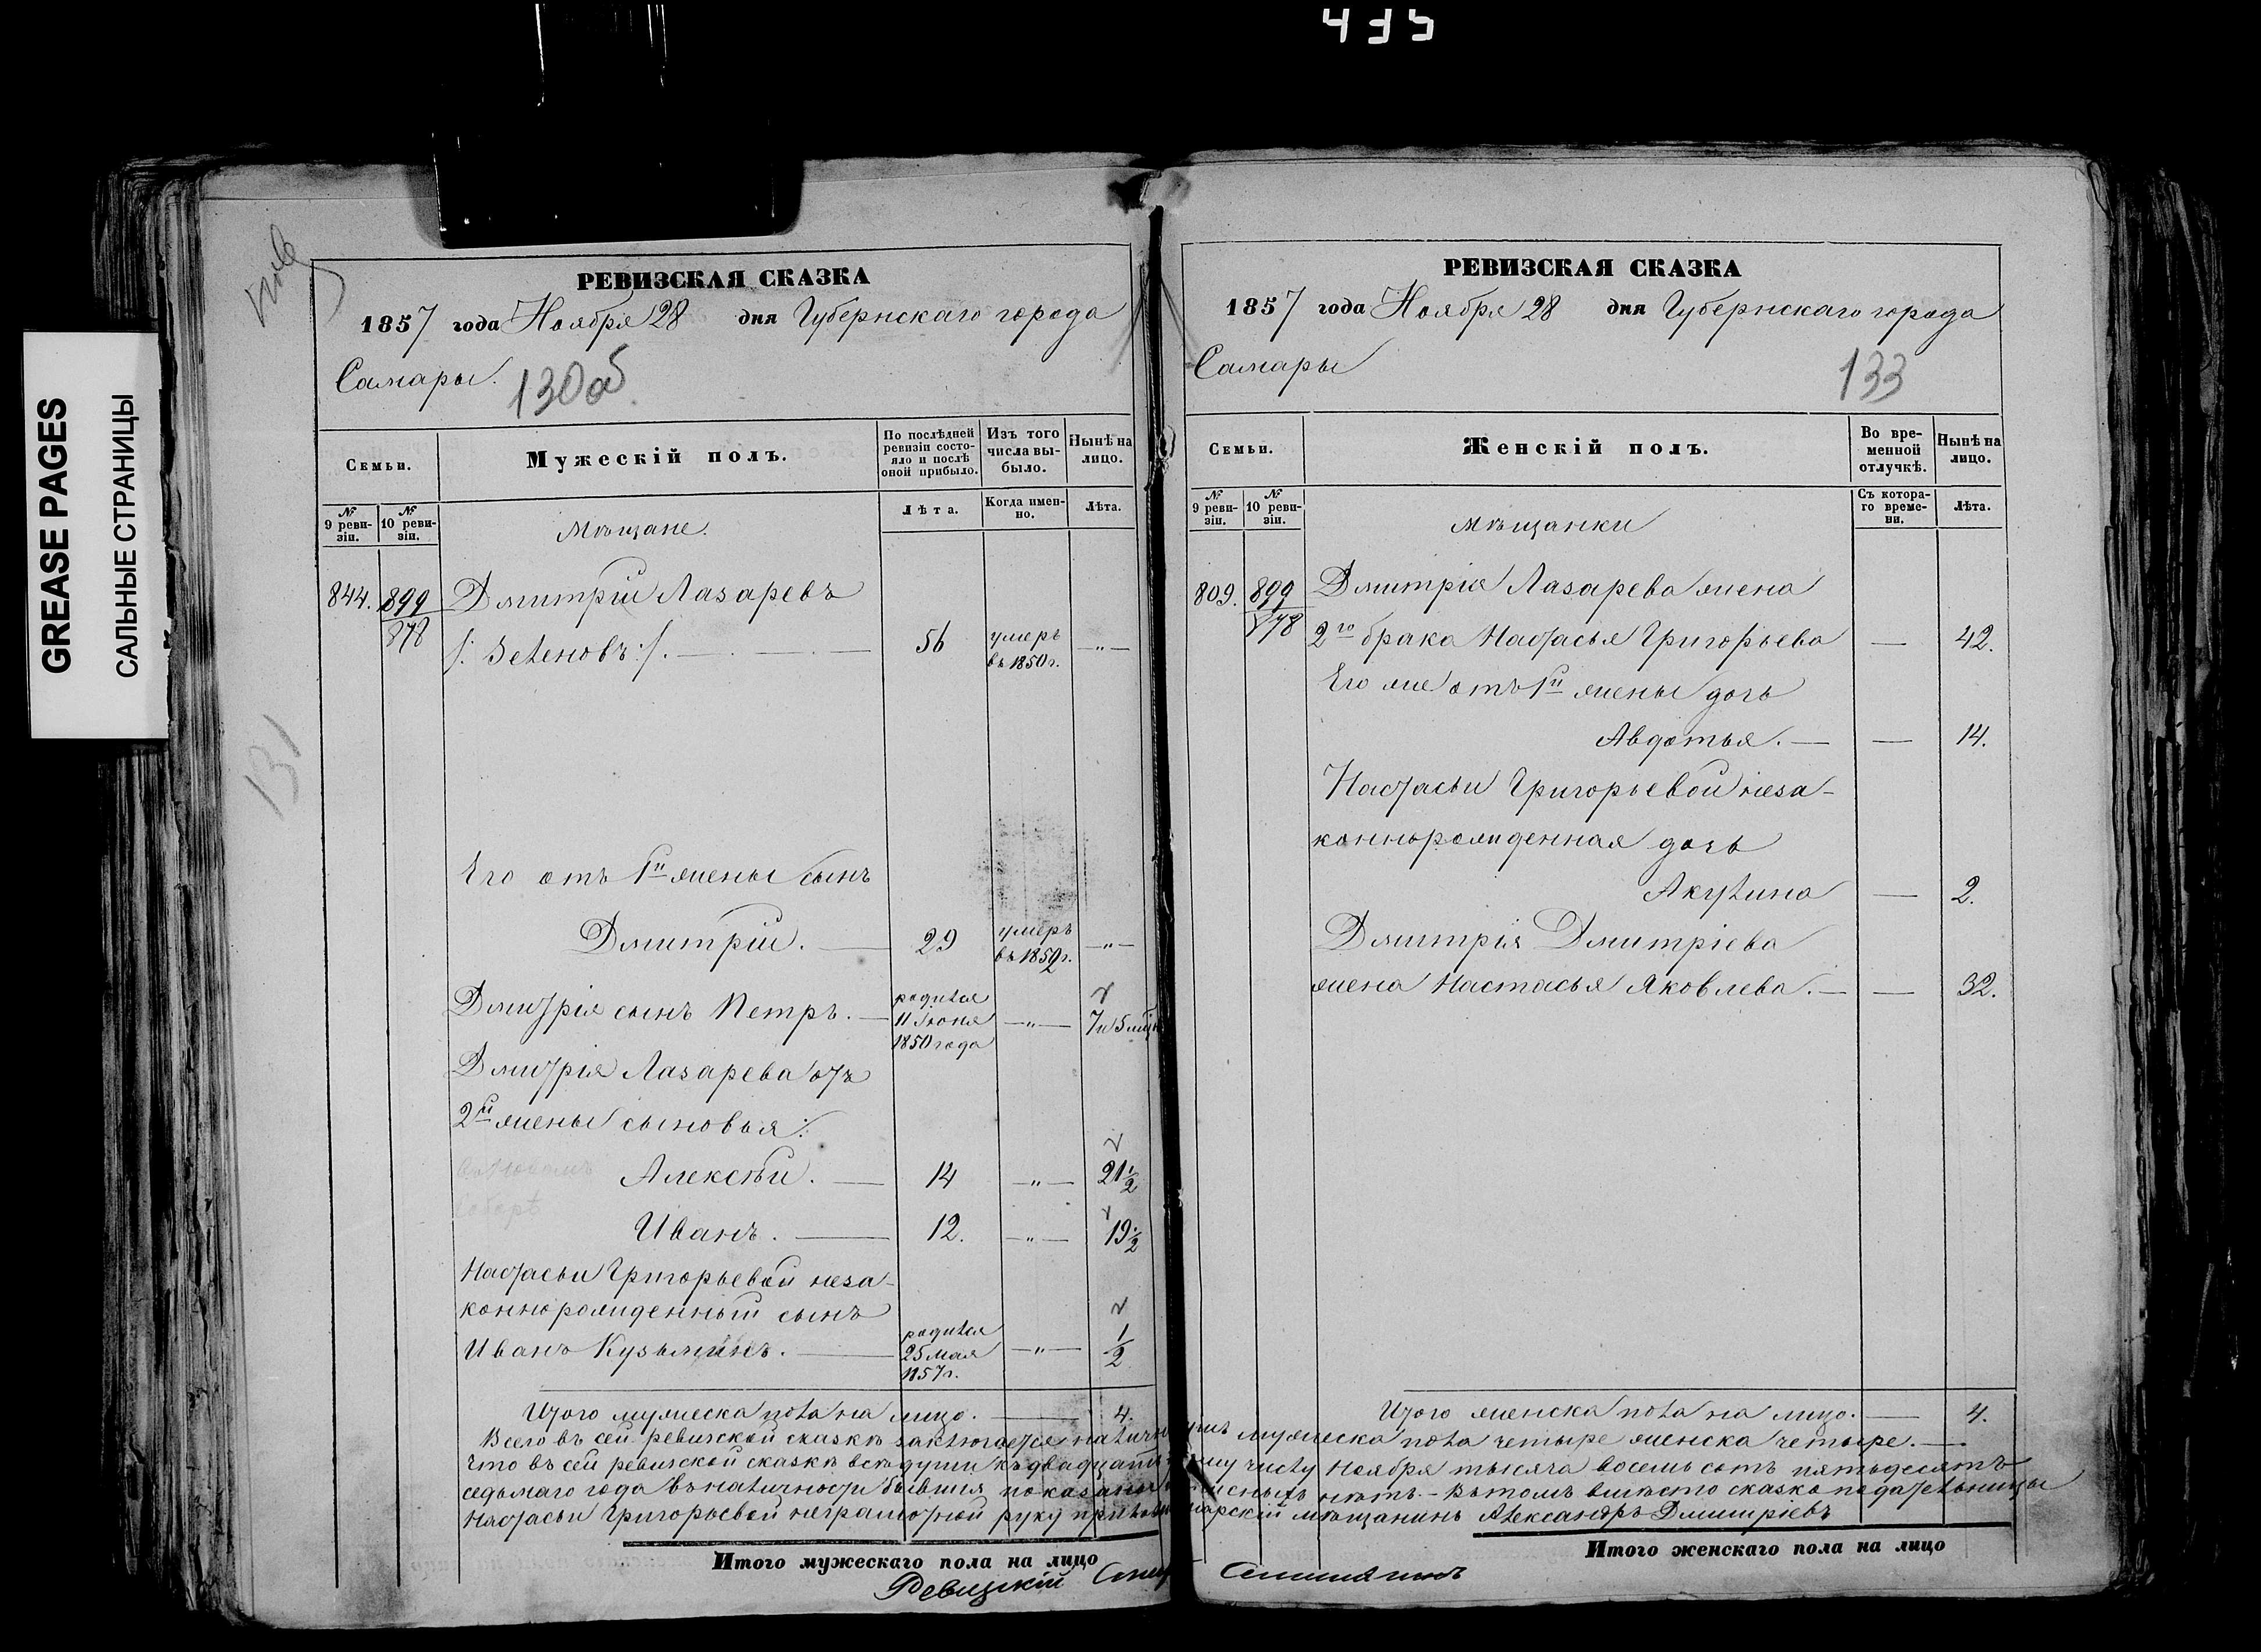 435
GREASE PAGES
САЛЬНЫЕ СТРАНИЦЫ
131
РЕВИЗСКАЯ СКАЗКА
1857 года Ноября 28 дня Губернскаго города
Самары.
130 об
Семьи.
Мужескій полъ.
По послѣдней ревизіи состояло и послѣ оной прибыло.
Изъ того числа выбыло.
Нынѣ на лицо.
№ 9 ревизіи.
№ 10 ревизіи.
Мѣщане.
Лѣта.
Когда именно.
Лѣта.
844. 899 Дмитрій Лазаревъ
878 /: Зеленовъ :/. — 56 умеръ въ 1850 г. —„—
Его отъ 1й жены сынъ
Дмитрій. — 29 умеръ въ 1852 г. —„—
Дмитрія сынъ Петръ. — родился 11 Іюня 1850 года —„— 7 и 5 мѣс
Дмитрія Лазарева отъ
2й жены сыновья:
Алексѣй. — 14 —„— 21½
Иванъ. — 12. —„— 19½
Настасьи Григорьевой неза-
коннорожденный сынъ
Иванъ Кузьминъ. — родился 25 мая 1857 г. —„— ½
Итого мужеска пола на лицо. — 4.
РЕВИЗСКАЯ СКАЗКА
1857 года Ноября 28 дня Губернскаго города
Самары
133
Семьи.
Женскій полъ.
Во временной отлучкѣ.
Нынѣ на лицо.
№ 9 ревизіи.
№ 10 ревизіи.
мѣщанки
Съ котораго времени.
Лѣта.
809. 899 Дмитрія Лазарева жена
878 2го брака Настасья Григорьева — 42.
Его же отъ 1й жены дочь
Авдотья. — — 14.
Настасьи Григорьевой неза-
коннорожденная дочь
Акулина — 2.
Дмитрія Дмитріева
жена Настасья Яковлева. — — 32.
Итого женска пола на лицо. — 4.
Всего въ сей ревизской сказкѣ заключается мужеска пола четыре женска четыре. —
Что въ сей ревизской сказкѣ всѣ души къ числу Ноября тысяча восемь сотъ пятьдесятъ
седьмаго года въ наличности бывшія показаны нѣтъ. – Вътомъ вмѣсто сказкоподательницы
Настасьи Григорьевой неграмотной руку мѣщанинъ Александръ Дмитріевъ
Итого мужескаго пола на лицо
Итого женскаго пола на лицо
Ревизскій